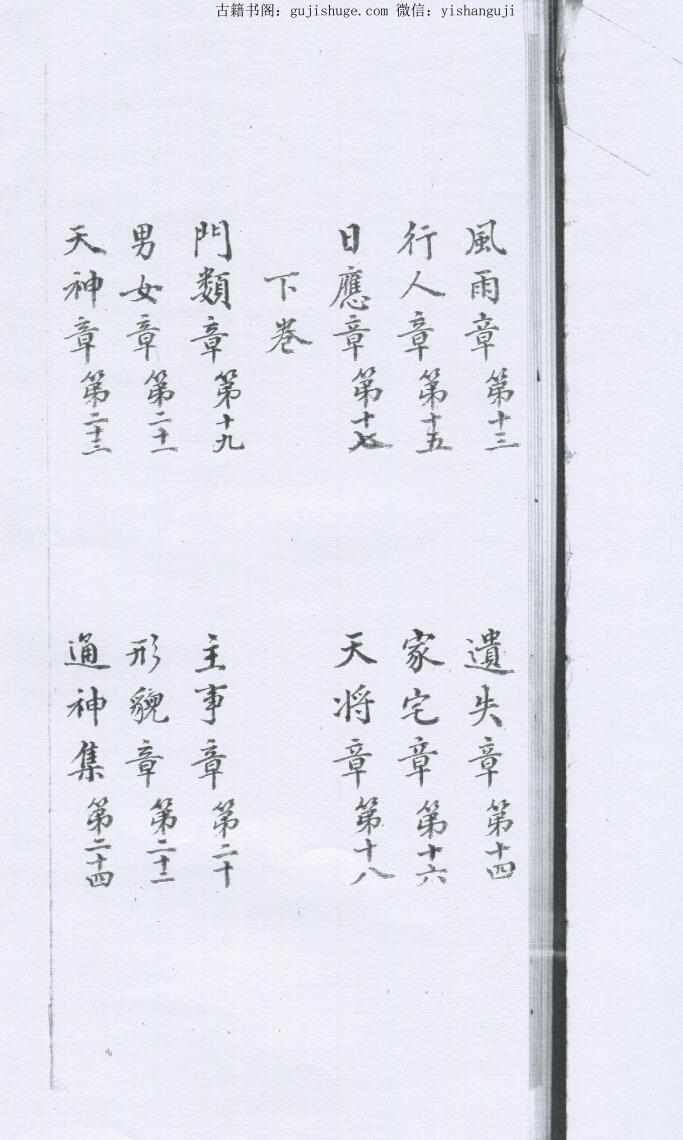 古籍书阁：gujishuge.com 微信：yishanguji
風雨章第十三 遺失章第十四
行人章第十五 家宅章第十六
日應章第十七 天将章第十八
下卷
門類章第十九 主事章第二十
男女章第二十一 形貌章第二十二
天神章第二十三 通神集第二十四